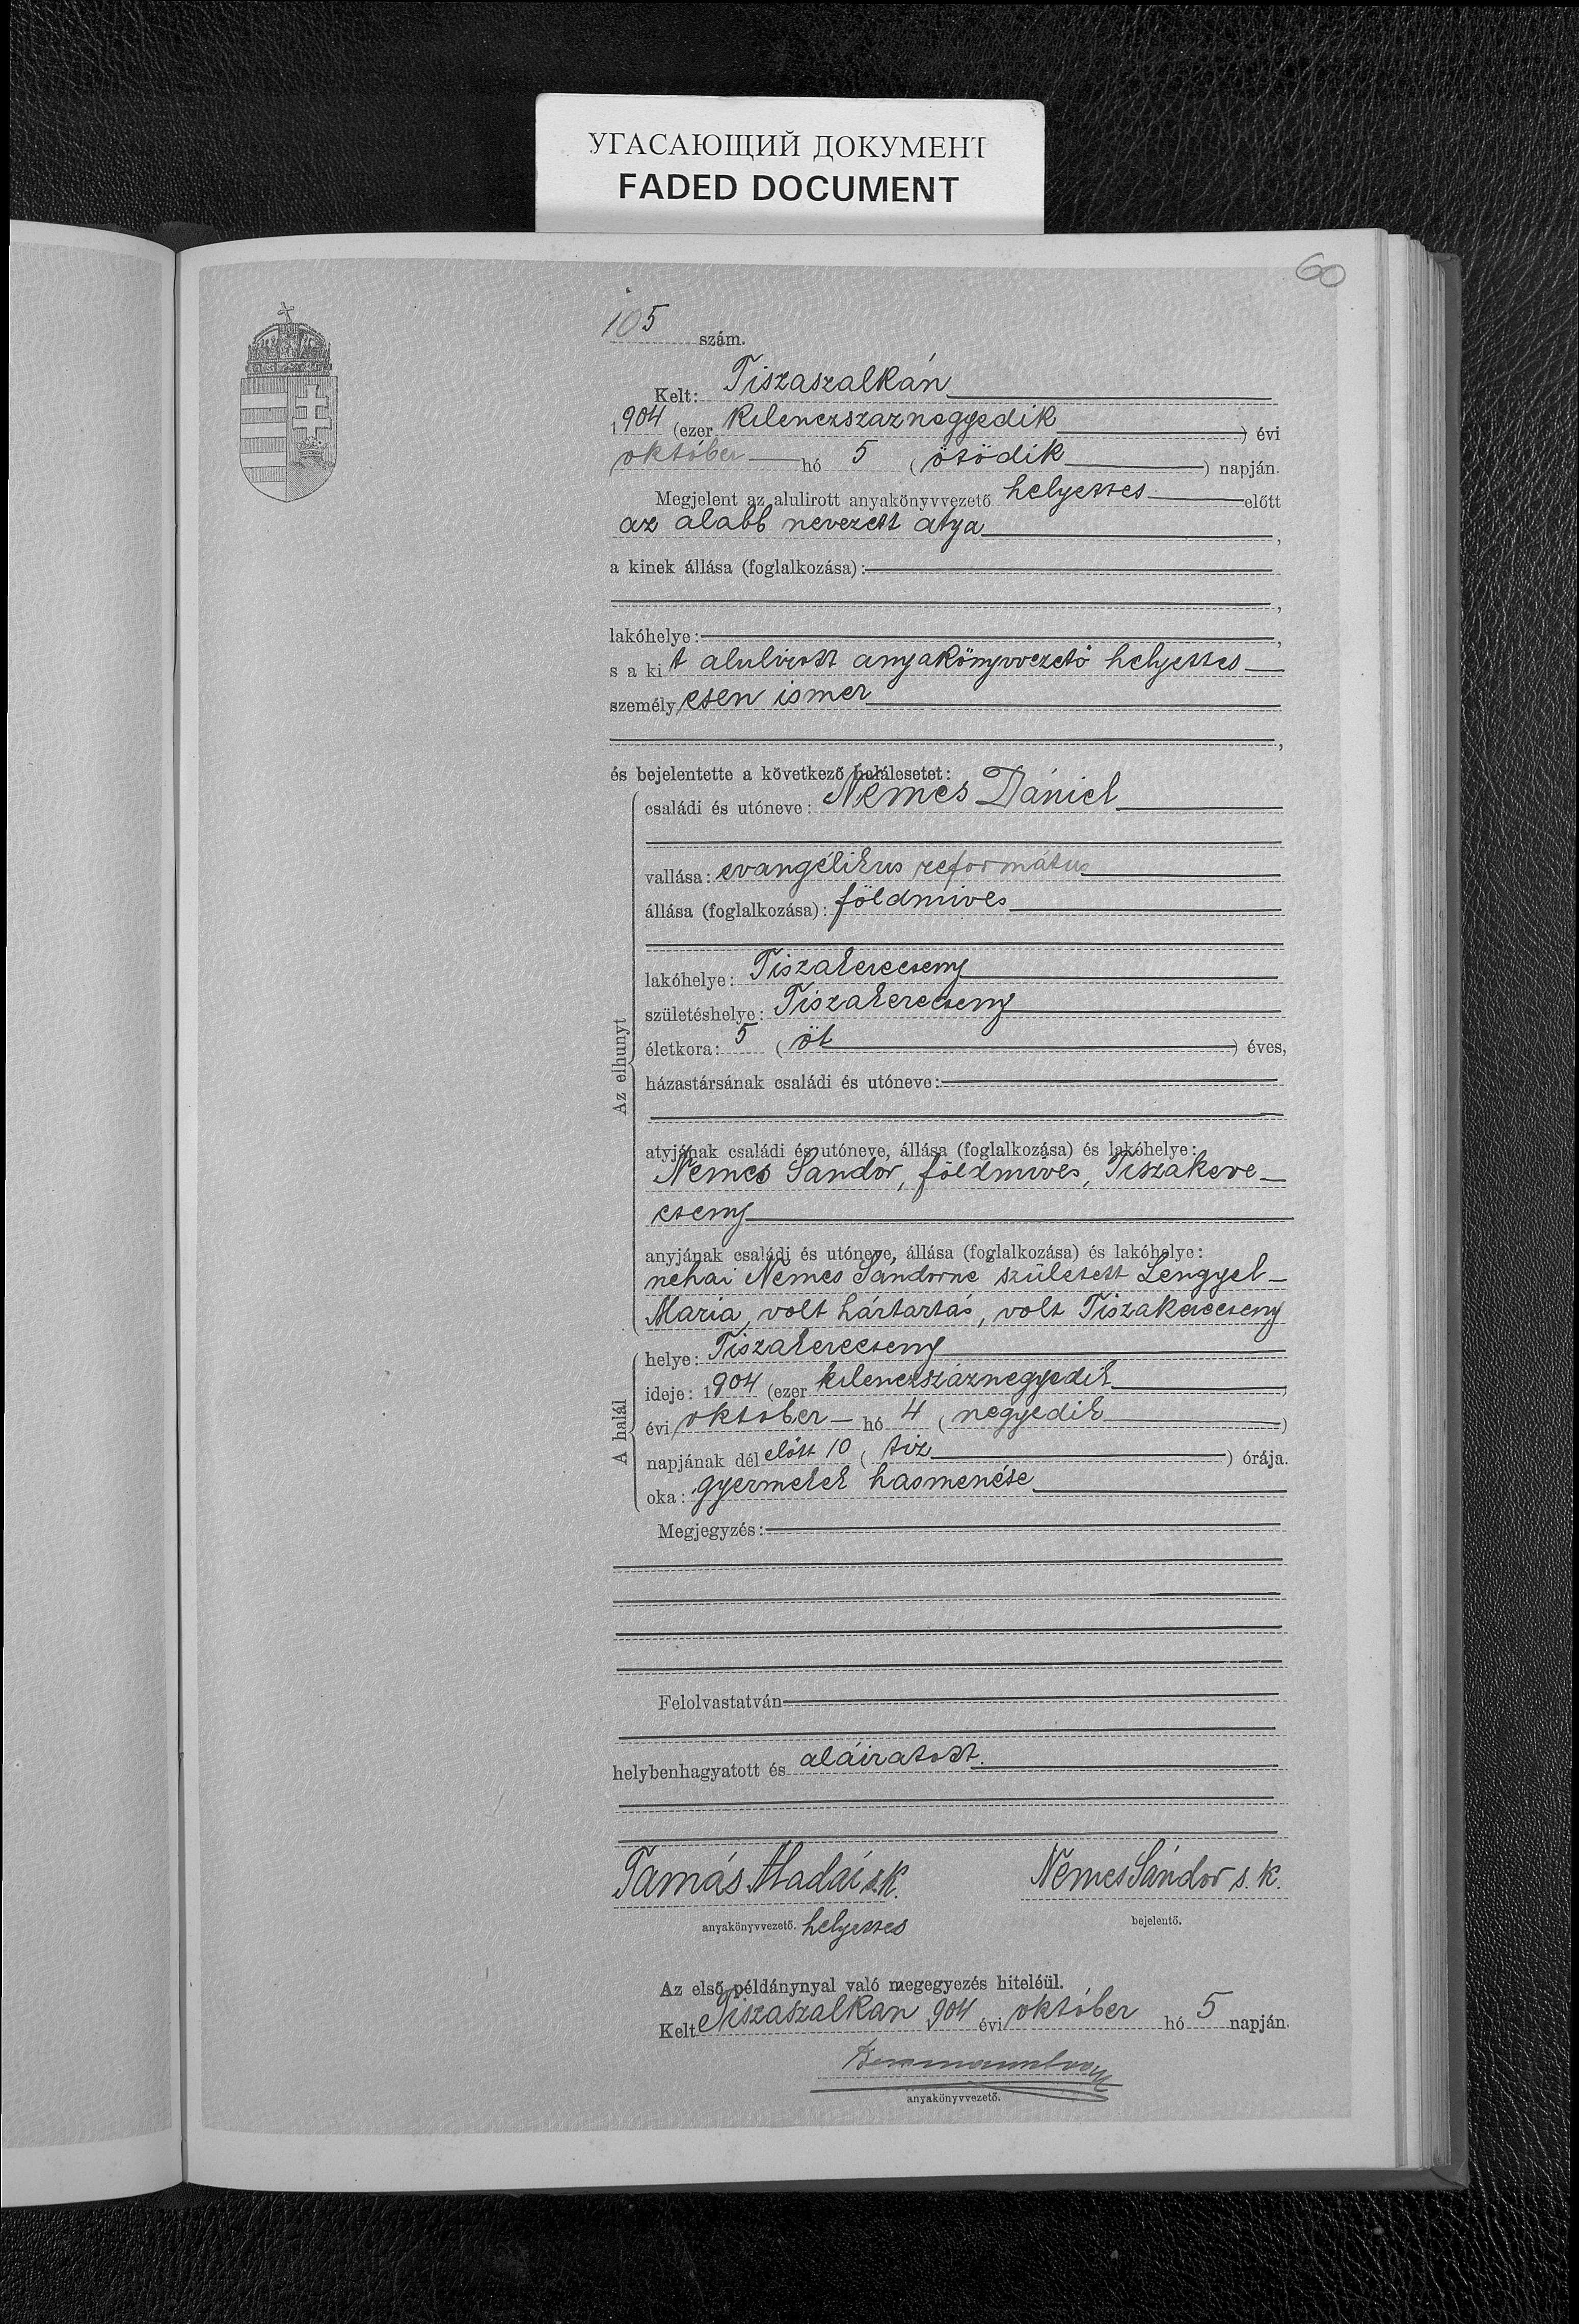 УГАСАЮЩИЙ ДОКУМЕНТ
FADED DOCUMENT
60
105 szám.
Kelt: Tiszaszalkán
1904 (ezer kilenczszaznegyedik) évi
október hó 5 (ötödik) napján.
Megjelent az alulirott anyakönyvvezető helyettes előtt
az alabb nevezett atya,
a kinek állása (foglalkozása):
lakóhelye:
s a kit alulirott anyakönyvvezető helyettes
személyesen ismer
és bejelentette a következő halálesetet:
Az elhunyt
családi és utóneve: Nemes Dániel
vallása: evangélikus református
állása (foglalkozása): földmives
lakóhelye: Tiszakerecseny
születéshelye: Tiszakerecseny
életkora: 5 (öt) éves,
házastársának családi és utóneve:
atyjának családi és utóneve, állása (foglalkozása) és lakóhelye:
Nemes Sandor, földmives, Tiszakere-
cseny
anyjának családi és utóneve, állása (foglalkozása) és lakóhelye:
nehai Nemes Sandorne született Lengyel
Maria, volt háztartás, volt Tiszakerecseny
A halál
helye: Tiszakerecseny
ideje: 1904 (ezer kilenczszáznegyedik
évi oktober hó 4 (negyedik)
napjának dél előtt 10 (tiz) órája.
oka: gyermekek hasmenése
Megjegyzés:
Felolvastatván
helybenhagyatott és aláiratott.
Tamás Aladár s.k. Nemes Sándor s. k.
anyakönyvvezető. helyettes bejelentő.
Az első példánynyal való megegyezés hiteléül.
Kelt Tiszaszalkan 904 évi október hó 5 napján.
anyakönyvvezető.